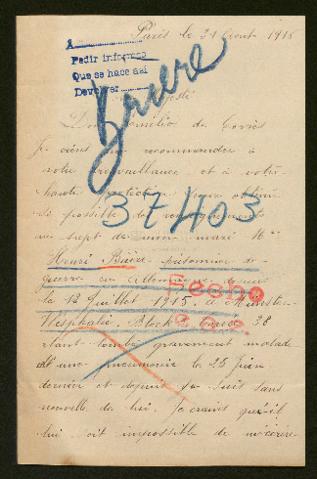 Paris le 21 Août 1915
A
Pedir informes
Que se hace así
Devolver
Brière
Don Emilio de Torrès
Je viens me recommander à
votre bienveillance et à votre
haute protection pour obtenir
si possible des renseignements
au sujet de mon mari Mr
37403
Henri Brière prisonnier de
guerre en Allemagne depuis
le 12 Juillet 1915, à Munster
Westphalie, Block 38
étant tombé gravement malade
d'une pneumonie le 25 Juin
dernier et depuis je suis sans
nouvelle de lui, je crains qu'il
lui soit impossible de m'écrire